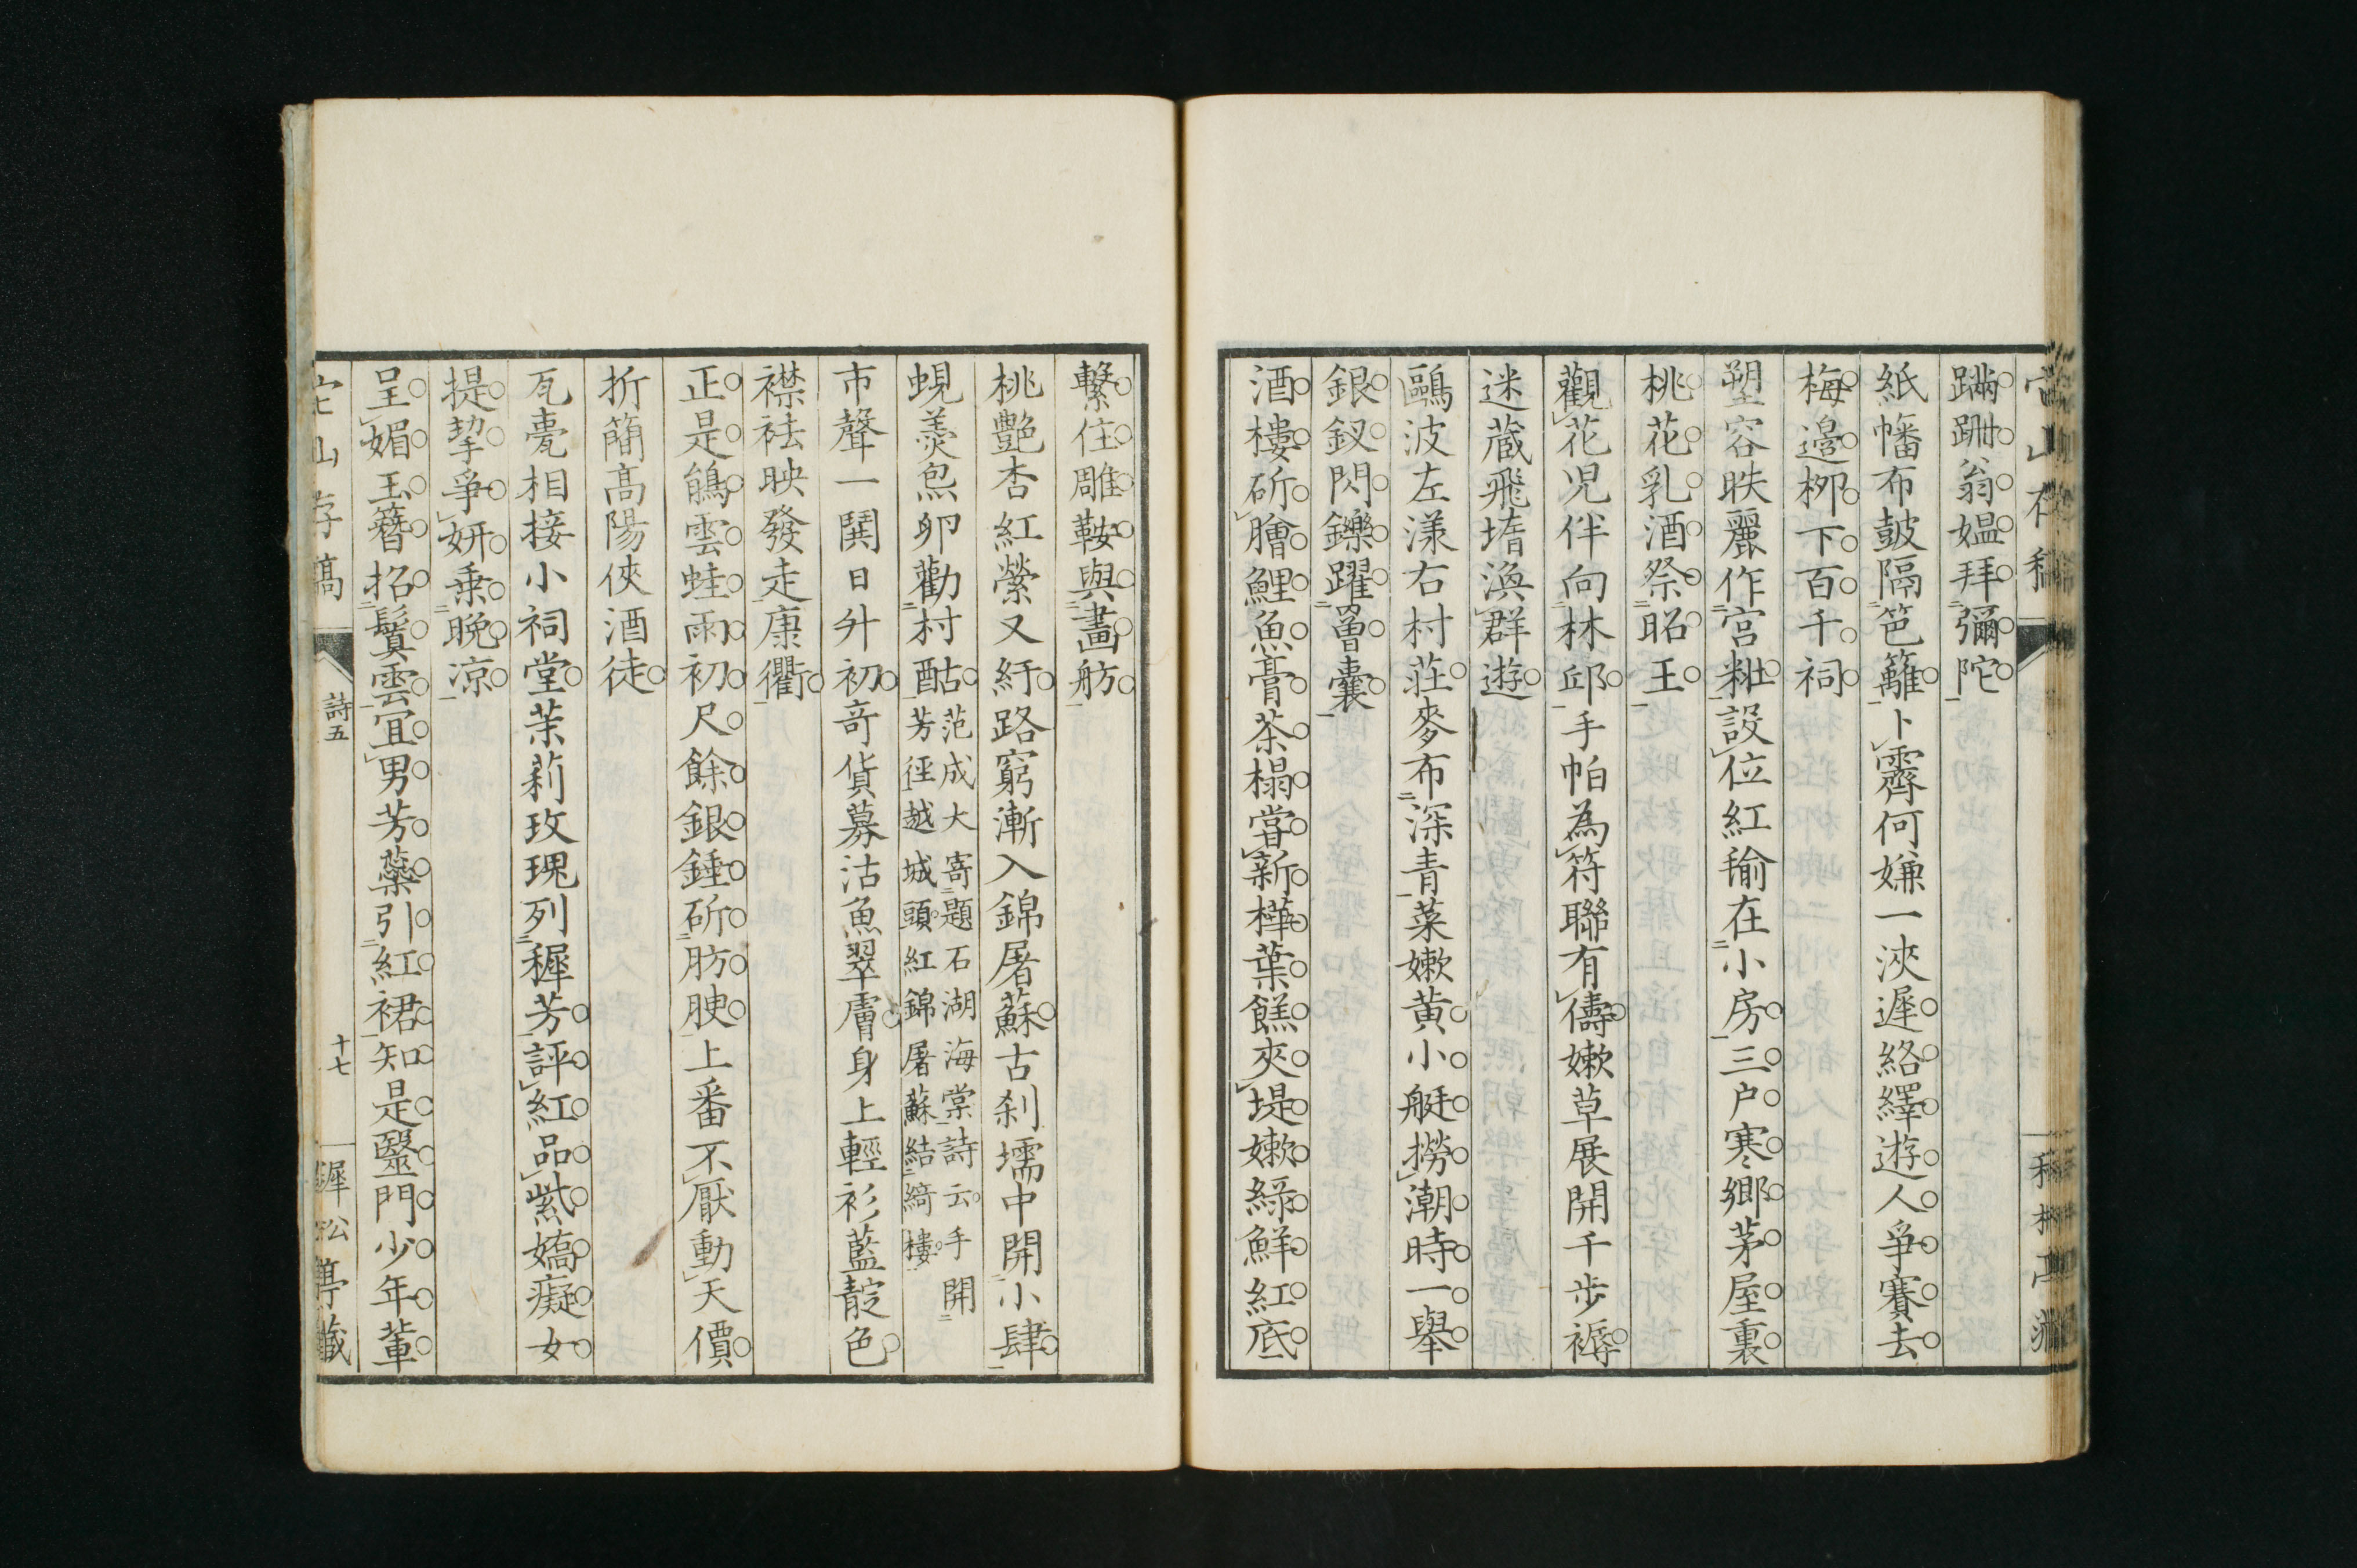 蹣跚翁媼拜彌陀
紙幡布皷隔笆籬卜霽何嫌一浹遲絡繹遊人爭賽去
梅邉柳下百千祠
塑容昳麗作宮粧設位紅褕在小房三户寒鄉茅屋裏
桃花乳酒祭昭王
觀花児伴向林邱手帕為符聯有儔嫩草展開千步褥
迷蔵飛堶渙群遊
鷗波左漾右村莊麥布深青菜嫩黄小艇撈潮時一舉
銀釵閃鑠躍罾囊
酒樓斫膾鯉魚膏茶榻嘗新樺葉餻夾堤嫩綠鮮紅底
繫住雕鞍與畫舫
桃艷杏紅縈又紆路窮漸入錦屠蘇古刹壖中開小肆
蜆羮炰卵勸村酤
范成大寄題石湖海棠詩云手開
芳徑越城頭紅錦屠蘇結綺樓
市聲一鬨日升初竒貨募沽魚翠膚身上輕衫藍靛色
襟袪映發走康衢
正是鵃雲蛙雨初尺餘銀錘斫肪腴上番不厭動天價
折簡髙陽俠酒徒
瓦甍相接小祠堂茉莉玫瑰列穉芳評紅品紫嬌癡女
提挈爭妍乗晩凉
呈媚玉簪招鬒雲宜男芳蘂引紅裙知是毉門少年輩
宕山存稿
詩五
十七
穉松亭藏